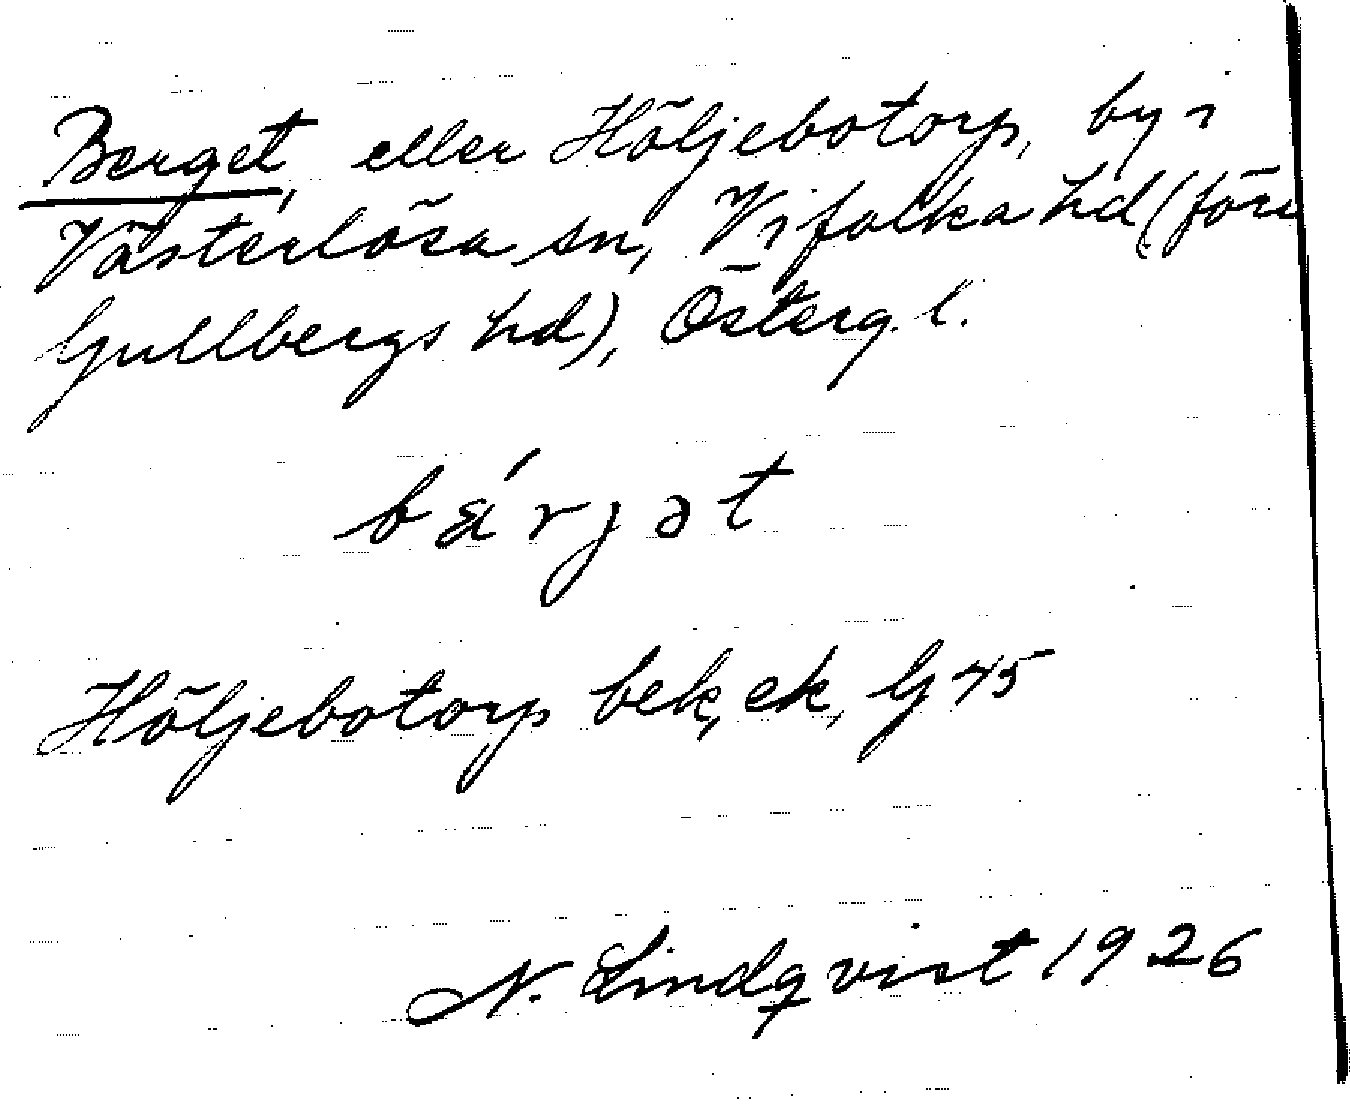 Berget, eller Höljebotorp, by i
Västerlösa sn, Vifolka hd (före
Gullbergs hd), Österg. l.
bǽrjət
Höljebotorp bek, ek, G 45
N. Lindqvist 1926